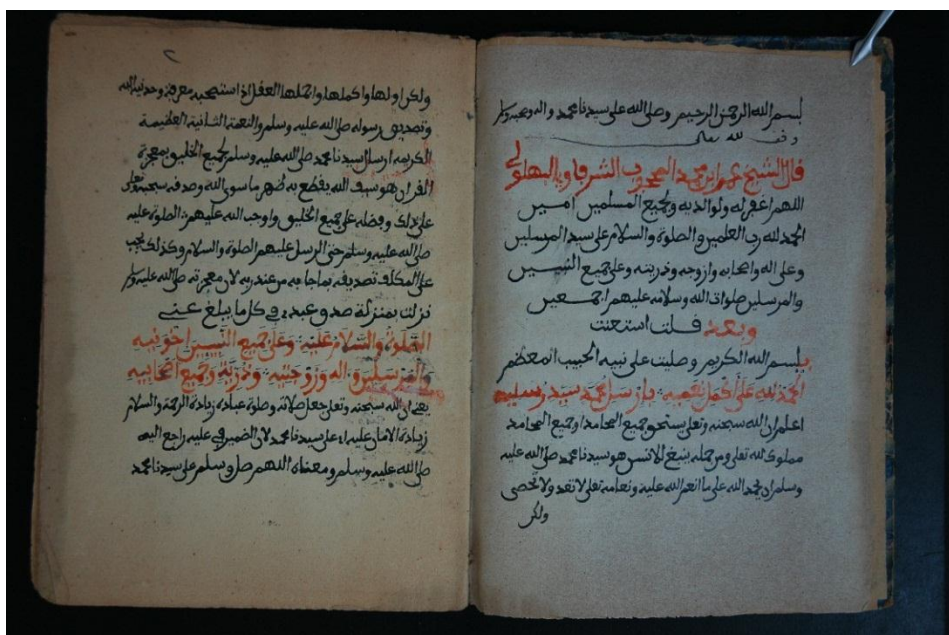 بسم الله الرحمن الرحيم وصلى الله على سيدنا محمد واله وصحبه وسلم
وقف لله تعالى
قال الشيخ عمر ابن محمد المحجوب الشرفاوي البهلولي
اللهم اغفر له ولوالديه ولجميع المسلمين امين
الحمد لله رب العلمين والصلوة والسلام على سيد المرسلين
وعلى اله واصحابه وازوجه وذريته وعلى جميع النبيين
والمرسلين صلوات الله وسلامه عليهم اجمعين
وبعد فلت استعنت
بسم الله الكريم وصليت على نبيه الحبيب المعظم
الحمد لله على اكمل نعمه بارسل محمد سيد رسله
اعلم ان الله سبحنه وتعلى يستحق جميع المحامد اوجميع المحامد
مملوك لله تعلى ومن حمله ينبغ الانس هو سيدنا محمد صلى الله عليه
وسلم ان يحمد الله على ما انعم الله عليه ونعامه تعلى لا تعد ولا تحصى
ولكن
٢
ولكن اولها واكملها واجملها العفل اذا استصحبه معرفة وحدنية الله
وتصديق رسوله صلى الله عليه وسلم والنعمة الثانية العظيمة
الكريمة ارسل سيدنا محمد صلى الله عليه وسلم لجميع الخليق بمعجزة
القران هو سيف الله يقطع به ظهر ما سوى الله وصدفه سبحنه وتعلى
على ذلك وفضله على جميع الخليق واوجب الله عليهم الصلوة عليه
صلى الله عليه وسلم حتى الرسل عليهم الصلوة والسلام وكذلك يجب
على المكلف تصديقه بما جا به من عند ربه لان معجزته صلى الله عليه وسلم
نزلت بمنزلة صدق عبدي في كل ما يبلغ عني
الصلوة والسلام عليه وعلى جميع النبيين اخونيه
والمرسلين واله وزوجته وذريته وجميع اصحابيه
يعني ان الله سبحنه وتعلى جعل صلاته وصلوة عباده زيادة الرحمة والسلام
زيادة الامان عليه اي على سيدنا محمد لان الضمير في عليه راجع اليه
صلى الله عليه وسلم ومعناه اللهم صل وسلم على سيدنا محمد